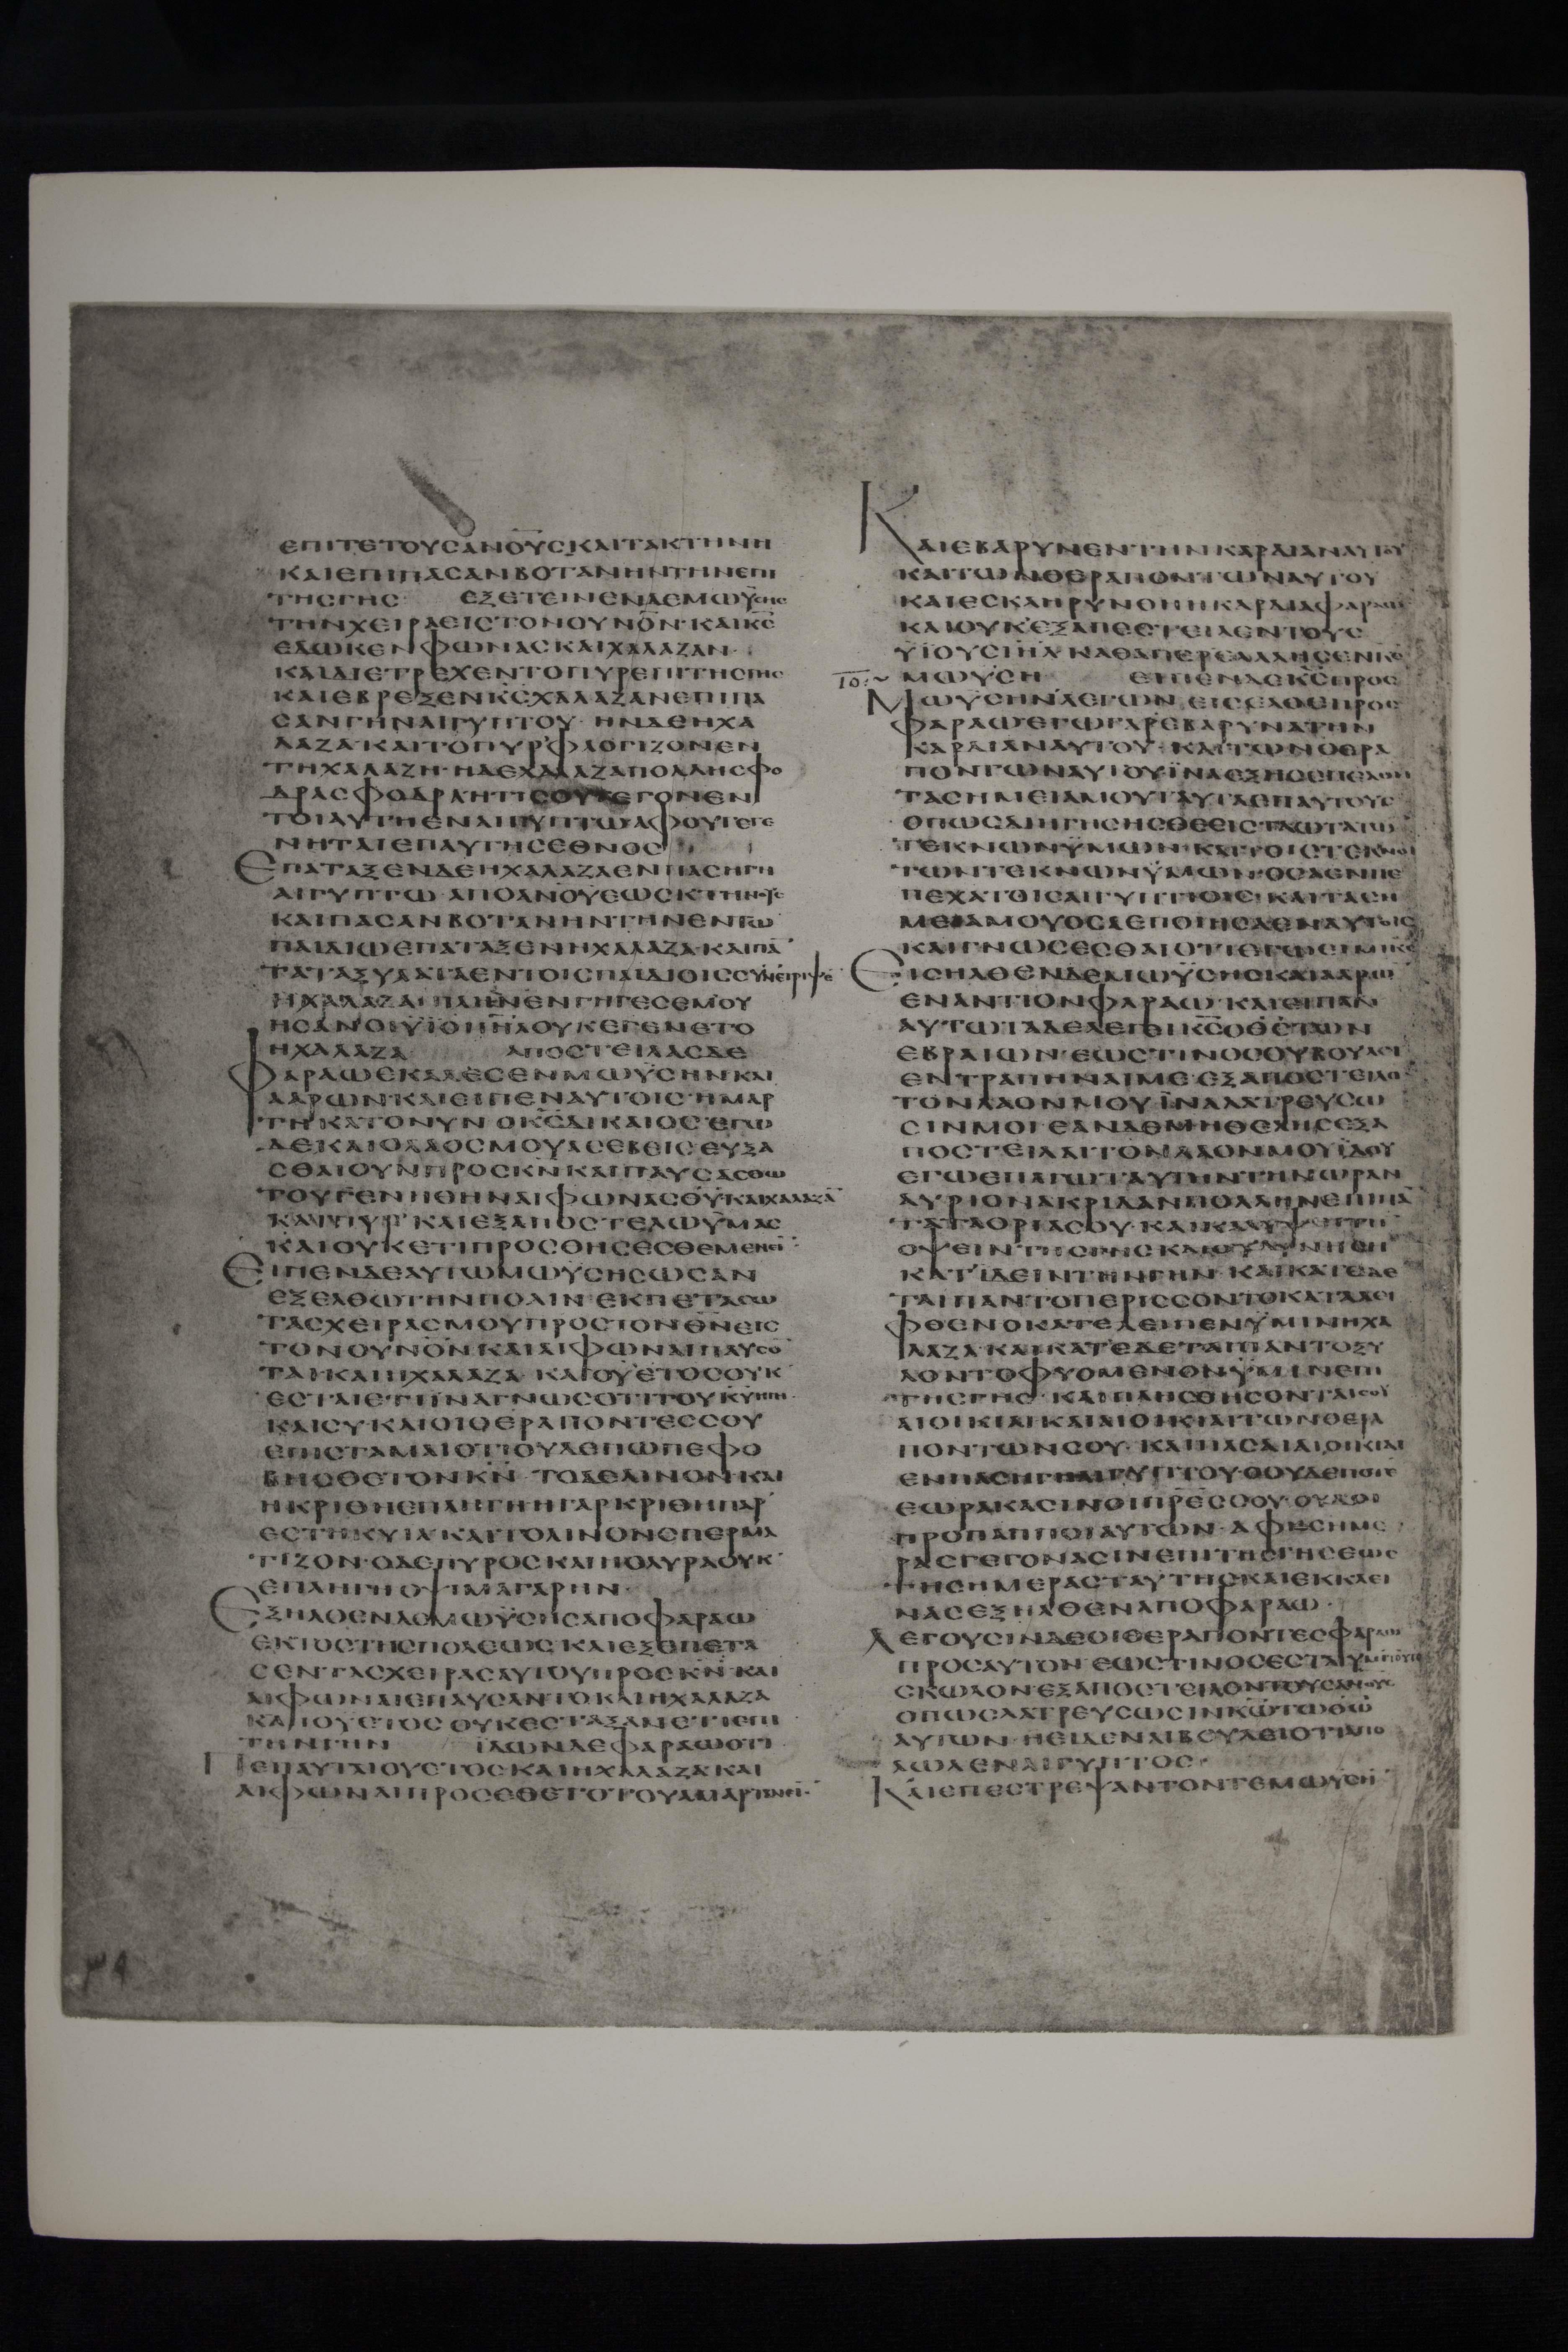 ΕΠΙΤΕΤΟΥΣΑΝΟΥΣΚΑΙΤΑΚΤΗΝΗ
ΚΑΙΕΠΙΠΑΣΑΝΒΟΤΑΝΗΝΤΗΝΕΠΙ
ΤΗΣΓΗΣ ΕΞΕΤΕΙΝΕΝΔΕΜΩΫΣΗΣ
ΤΗΝΧΕΙΡΑΕΙΣΤΟΝΟΥΝΟΝ·ΚΑΙΚΣ
ΕΔΩΚΕΝΦΩΝΑΣΚΑΙΧΑΛΑΖΑΝ·
ΚΑΙΔΙΕΤΡΕΧΕΝΤΟΠΥΡΕΠΙΤΗΣΓΗΣ
ΚΑΙΕΒΡΕΞΕΝΚΣΧΑΛΑΖΑΝΕΠΙΠΑ
ΣΑΝΓΗΝΑΙΓΥΠΤΟΥ·ΗΝΔΕΗΧΑ
ΛΑΖΑΚΑΙΤΟΠΥΡΦΛΟΓΙΖΟΝΕΝ
ΤΗΧΑΛΑΖΗ·ΗΔΕΧΑΛΑΖΑΠΟΛΛΗΣΦΟ
ΔΡΑΣΦΟΔΡΑΗΤΙΣΟΥΓΕΓΟΝΕΝ
ΤΟΙΑΥΤΗΕΝΑΙΓΥΠΤΩΑΦΟΥΓΕΓΕ
ΝΗΤΑΙΕΠΑΥΤΗΣΕΘΝΟΣ
ΕΠΑΤΑΞΕΝΔΕΗΧΑΛΑΖΑΕΝΠΑΣΗΓΗ
ΑΙΓΥΠΤΩ·ΑΠΟΑΝΟΥΕΩΣΚΤΗΝΟΥΣ
ΚΑΙΠΑΣΑΝΒΟΤΑΝΗΝΤΗΝΕΝΤΩ
ΠΑΙΔΙΩΕΠΑΤΑΞΕΝΗΧΑΛΑΖΑ·ΚΑΙΠΑ
ΤΑΤΑΞΥΛΑΤΑΕΝΤΟΙΣΠΑΙΔΙΟΙΣΣΥΝΕΤΡΙΨΕ
ΗΧΑΛΑΖΑ·ΠΛΗΝΕΝΓΗΓΕΣΕΜΟΥ
ΗΣΑΝΟΙΫΙΟΙΙΗΛΟΥΚΕΓΕΝΕΤΟ
ΗΧΑΛΑΖΑ ΑΠΟΣΤΕΙΛΑΣΔΕ
ΦΑΡΑΩΕΚΑΛΕΣΕΝΜΩΫΣΗΝΚΑΙ
ΑΑΡΩΝ·ΚΑΙΕΙΠΕΝΑΥΤΟΙΣ·ΗΜΑΡ
ΤΗΚΑΤΟΝΥΝ·ΟΚΣΔΙΚΑΙΟΣ·ΕΓΩ
ΔΕΚΑΙΟΛΑΟΣΜΟΥΑΣΕΒΕΙΣ·ΕΥΞΑ
ΣΘΑΙΟΥΝΠΡΟΣΚΝΚΑΙΠΑΥΣΑΣΘΩ
ΤΟΥΓΕΝΗΘΗΝΑΙΦΩΝΑΣΘΥΚΑΙΧΑΛΑΖΑ
ΚΑΙΠΥΡ·ΚΑΙΕΞΑΠΟΣΤΕΛΩΫΜΑΣ
ΚΑΙΟΥΚΕΤΙΠΡΟΣΘΗΣΕΣΘΕΜΕΝΕΙ
ΕΙΠΕΝΔΕΑΥΤΩΜΩΫΣΗΣΩΣΑΝ
ΕΞΕΛΘΩΤΗΝΠΟΛΙΝ·ΕΚΠΕΤΑΣΩ
ΤΑΣΧΕΙΡΑΣΜΟΥΠΡΟΣΤΟΝΘΝΕΙΣ
ΤΟΝΟΥΝΟΝ·ΚΑΙΑΙΦΩΝΑΙΠΑΥΣΟ
ΤΑΙ·ΚΑΙΗΧΑΛΑΖΑ·ΚΑΙΟΥΕΤΟΣΟΥΚ
ΕΣΤΑΙΕΤΙΙΝΑΓΝΩΣΟΤΙΤΟΥΚΥΗΓΗ·
ΚΑΙΣΥ·ΚΑΙΟΙΘΕΡΑΠΟΝΤΕΣΣΟΥ
ΕΠΙΣΤΑΜΑΙΟΤΙΟΥΔΕΠΩΠΕΦΟ
ΒΗΣΘΕΤΟΝΚΝ·ΤΟΔΕΛΙΝΟΝΚΑΙ
ΗΚΡΙΘΗΕΠΛΗΓΗΗΓΑΡΚΡΙΘΗΠΑΡ
ΕΣΤΗΚΥΙΑ·ΚΑΙΤΟΛΙΝΟΝΣΠΕΡΜΑ
ΤΙΖΟΝ·ΟΔΕΠΥΡΟΣΚΑΙΗΟΛΥΡΑΟΥΚ
ΕΠΛΗΓΗΟΨΙΜΑΓΑΡΗΝ·
ΕΞΗΛΘΕΝΔΕΜΩΫΣΗΣΑΠΟΦΑΡΑΩ
ΕΚΤΟΣΤΗΣΠΟΛΕΩΣ·ΚΑΙΕΞΕΠΕΤΑ
ΣΕΝΤΑΣΧΕΙΡΑΣΑΥΤΟΥΠΡΟΣΚΝ·ΚΑΙ
ΑΙΦΩΝΑΙΕΠΑΥΣΑΝΤΟΚΑΙΗΧΑΛΑΖΑ
ΚΑΙΟΥΕΤΟΣΟΥΚΕΣΤΑΞΑΝΕΤΙΕΠΙ
ΤΗΝΓΗΝ ΪΔΩΝΔΕΦΑΡΑΩΟΤΙ
ΠΕΠΑΥΤΑΙΟΥΕΤΟΣΚΑΙΗΧΑΛΑΖΑΚΑΙ
ΑΙΦΩΝΑΙΠΡΟΣΕΘΕΤΟΤΟΥΑΜΑΡΤΑΝΕΙ·
ΚΑΙΕΒΑΡΥΝΕΝΤΗΝΚΑΡΔΙΑΝΑΥΤΟΥ
ΚΑΙΤΩΝΘΕΡΑΠΟΝΤΩΝΑΥΤΟΥ
ΚΑΙΕΣΚΛΗΡΥΝΘΗΗΚΑΡΔΙΑΦΑΡΑΩ
ΚΑΙΟΥΚΕΞΑΠΕΣΤΕΙΛΕΝΤΟΥΣ
ΥΪΟΥΣΙΗΛ·ΚΑΘΑΠΕΡΕΛΑΛΗΣΕΝΚΣ
ΜΩΥΣΗ ΕΙΠΕΝΔΕΚΣΠΡΟΣ
ΜΩΫΣΗΝΛΕΓΩΝ·ΕΙΣΕΛΘΕΠΡΟΣ
ΦΑΡΑΩΕΓΩΓΑΡΕΒΑΡΥΝΑΤΗΝ
ΚΑΡΔΙΑΝΑΥΤΟΥ·ΚΑΙΤΩΝΘΕΡΑ
ΠΟΝΤΩΝΑΥΤΟΥΪΝΑΕΞΗΣΕΠΕΛΘΗ
ΤΑΣΗΜΕΙΑΜΟΥΤΑΥΤΑΕΠΑΥΤΟΥΣ
ΟΠΩΣΔΙΗΓΗΣΗΣΘΕΕΙΣΤΑΩΤΑΤΩ
ΤΕΚΝΩΝΫΜΩΝ·ΚΑΙΤΟΙΣΤΕΚΝΟΙ
ΤΩΝΤΕΚΝΩΝΫΜΩΝ·ΟΣΑΕΝΠΕ
ΠΕΧΑΤΟΙΣΑΙΓΥΠΤΙΟΙΣ·ΚΑΙΤΑΣΗ
ΜΕΙΑΜΟΥΟΣΑΕΠΟΙΗΣΑΕΝΑΥΤΟΙΣ
ΚΑΙΓΝΩΣΕΣΘΑΙΟΤΙΕΓΩΕΙΜΙΚΣ
ΕΙΣΗΛΘΕΝΔΕΜΩΫΣΗΣΚΑΙΑΑΡΩ
ΕΝΑΝΤΙΟΝΦΑΡΑΩ·ΚΑΙΕΙΠΑΝ
ΑΥΤΩΤΑΔΕΛΕΓΕΙΚΣΟΘΣΤΩΝ
ΕΒΡΑΙΩΝ·ΕΩΣΤΙΝΟΣΟΥΒΟΥΛΕΙ
ΕΝΤΡΑΠΗΝΑΙΜΕ·ΕΞΑΠΟΣΤΕΙΛΟ
ΤΟΝΛΑΟΝΜΟΥΪΝΑΛΑΤΡΕΥΣΩ
ΣΙΝΜΟΙΕΑΝΔΕΜΗΘΕΛΗΣΕΞΑ
ΠΟΣΤΕΙΛΑΙΤΟΝΛΑΟΝΜΟΥΪΔΟΥ
ΕΓΩΕΠΑΓΩΤΑΥΤΗΝΤΗΝΩΡΑΝ
ΑΥΡΙΟΝΑΚΡΙΔΑΝΠΟΛΛΗΝΕΠΙΠΑ
ΤΑΤΑΟΡΙΑΣΟΥ·ΚΑΙΚΑΛΥΨΕΙΤΗ
ΟΨΕΙΝΤΗΣΓΗΣΚΑΙΟΥΔΥΝΗΣΗ
ΚΑΤΙΔΕΙΝΤΗΝΓΗΝ·ΚΑΙΚΑΤΕΔΕ
ΤΑΙΠΑΝΤΟΠΕΡΙΣΣΟΝΤΟΚΑΤΑΛΕΙ
ΦΘΕΝΟΚΑΤΕΛΕΙΠΕΝΫΜΙΝΗΧΑ
ΛΑΖΑ·ΚΑΙΚΑΤΕΔΕΤΑΙΠΑΝΤΟΞΥ
ΛΟΝΤΟΦΥΟΜΕΝΟΝΫΜΙΝΕΠΙ
ΤΗΣΓΗΣ·ΚΑΙΠΛΗΣΘΗΣΟΝΤΑΙΣΟΥ
ΑΙΟΙΚΙΑΙΚΑΙΑΙΟΙΚΙΑΙΤΩΝΘΕΡΑ
ΠΟΝΤΩΝΣΟΥ·ΚΑΙΠΑΣΑΙΑΙΟΙΚΙΑΙ
ΕΝΠΑΣΗΓΗΑΙΓΥΠΤΟΥ·ΟΟΥΔΕΠΟΤΕ
ΕΩΡΑΚΑΣΙΝΟΙΠΡΕΣΣΟΥ·ΟΥΔΟΙ
ΠΡΟΠΑΠΠΟΙΑΥΤΩΝ·ΑΦΗΣΗΜΕ
ΡΑΣΓΕΓΟΝΑΣΙΝΕΠΙΤΗΣΓΗΣΕΩΣ
ΤΗΣΗΜΕΡΑΣΤΑΥΤΗΣΚΑΙΕΚΚΛΕΙ
ΝΑΣΕΞΗΛΘΕΝΑΠΟΦΑΡΑΩ·
ΛΕΓΟΥΣΙΝΔΕΟΙΘΕΡΑΠΟΝΤΕΣΦΑΡΑΩ
ΠΡΟΣΑΥΤΟΝ·ΕΩΣΤΙΝΟΣΕΣΤΑΙΥΜΙΝΤΟΥΤΟ
ΣΚΩΛΟΝ·ΕΞΑΠΟΣΤΕΙΛΟΝΤΟΥΣΑΝΟΥΣ
ΟΠΩΣΛΑΤΡΕΥΣΩΣΙΝΚΩΤΩΘΩ
ΑΥΤΩΝ·ΗΕΙΔΕΝΑΙΒΟΥΛΕΙΟΤΙΑΠΟ
ΛΩΛΕΝΑΙΓΥΠΤΟΣ·
ΚΑΙΕΠΕΣΤΡΕΨΑΝΤΟΝΤΕΜΩΫΣΗ